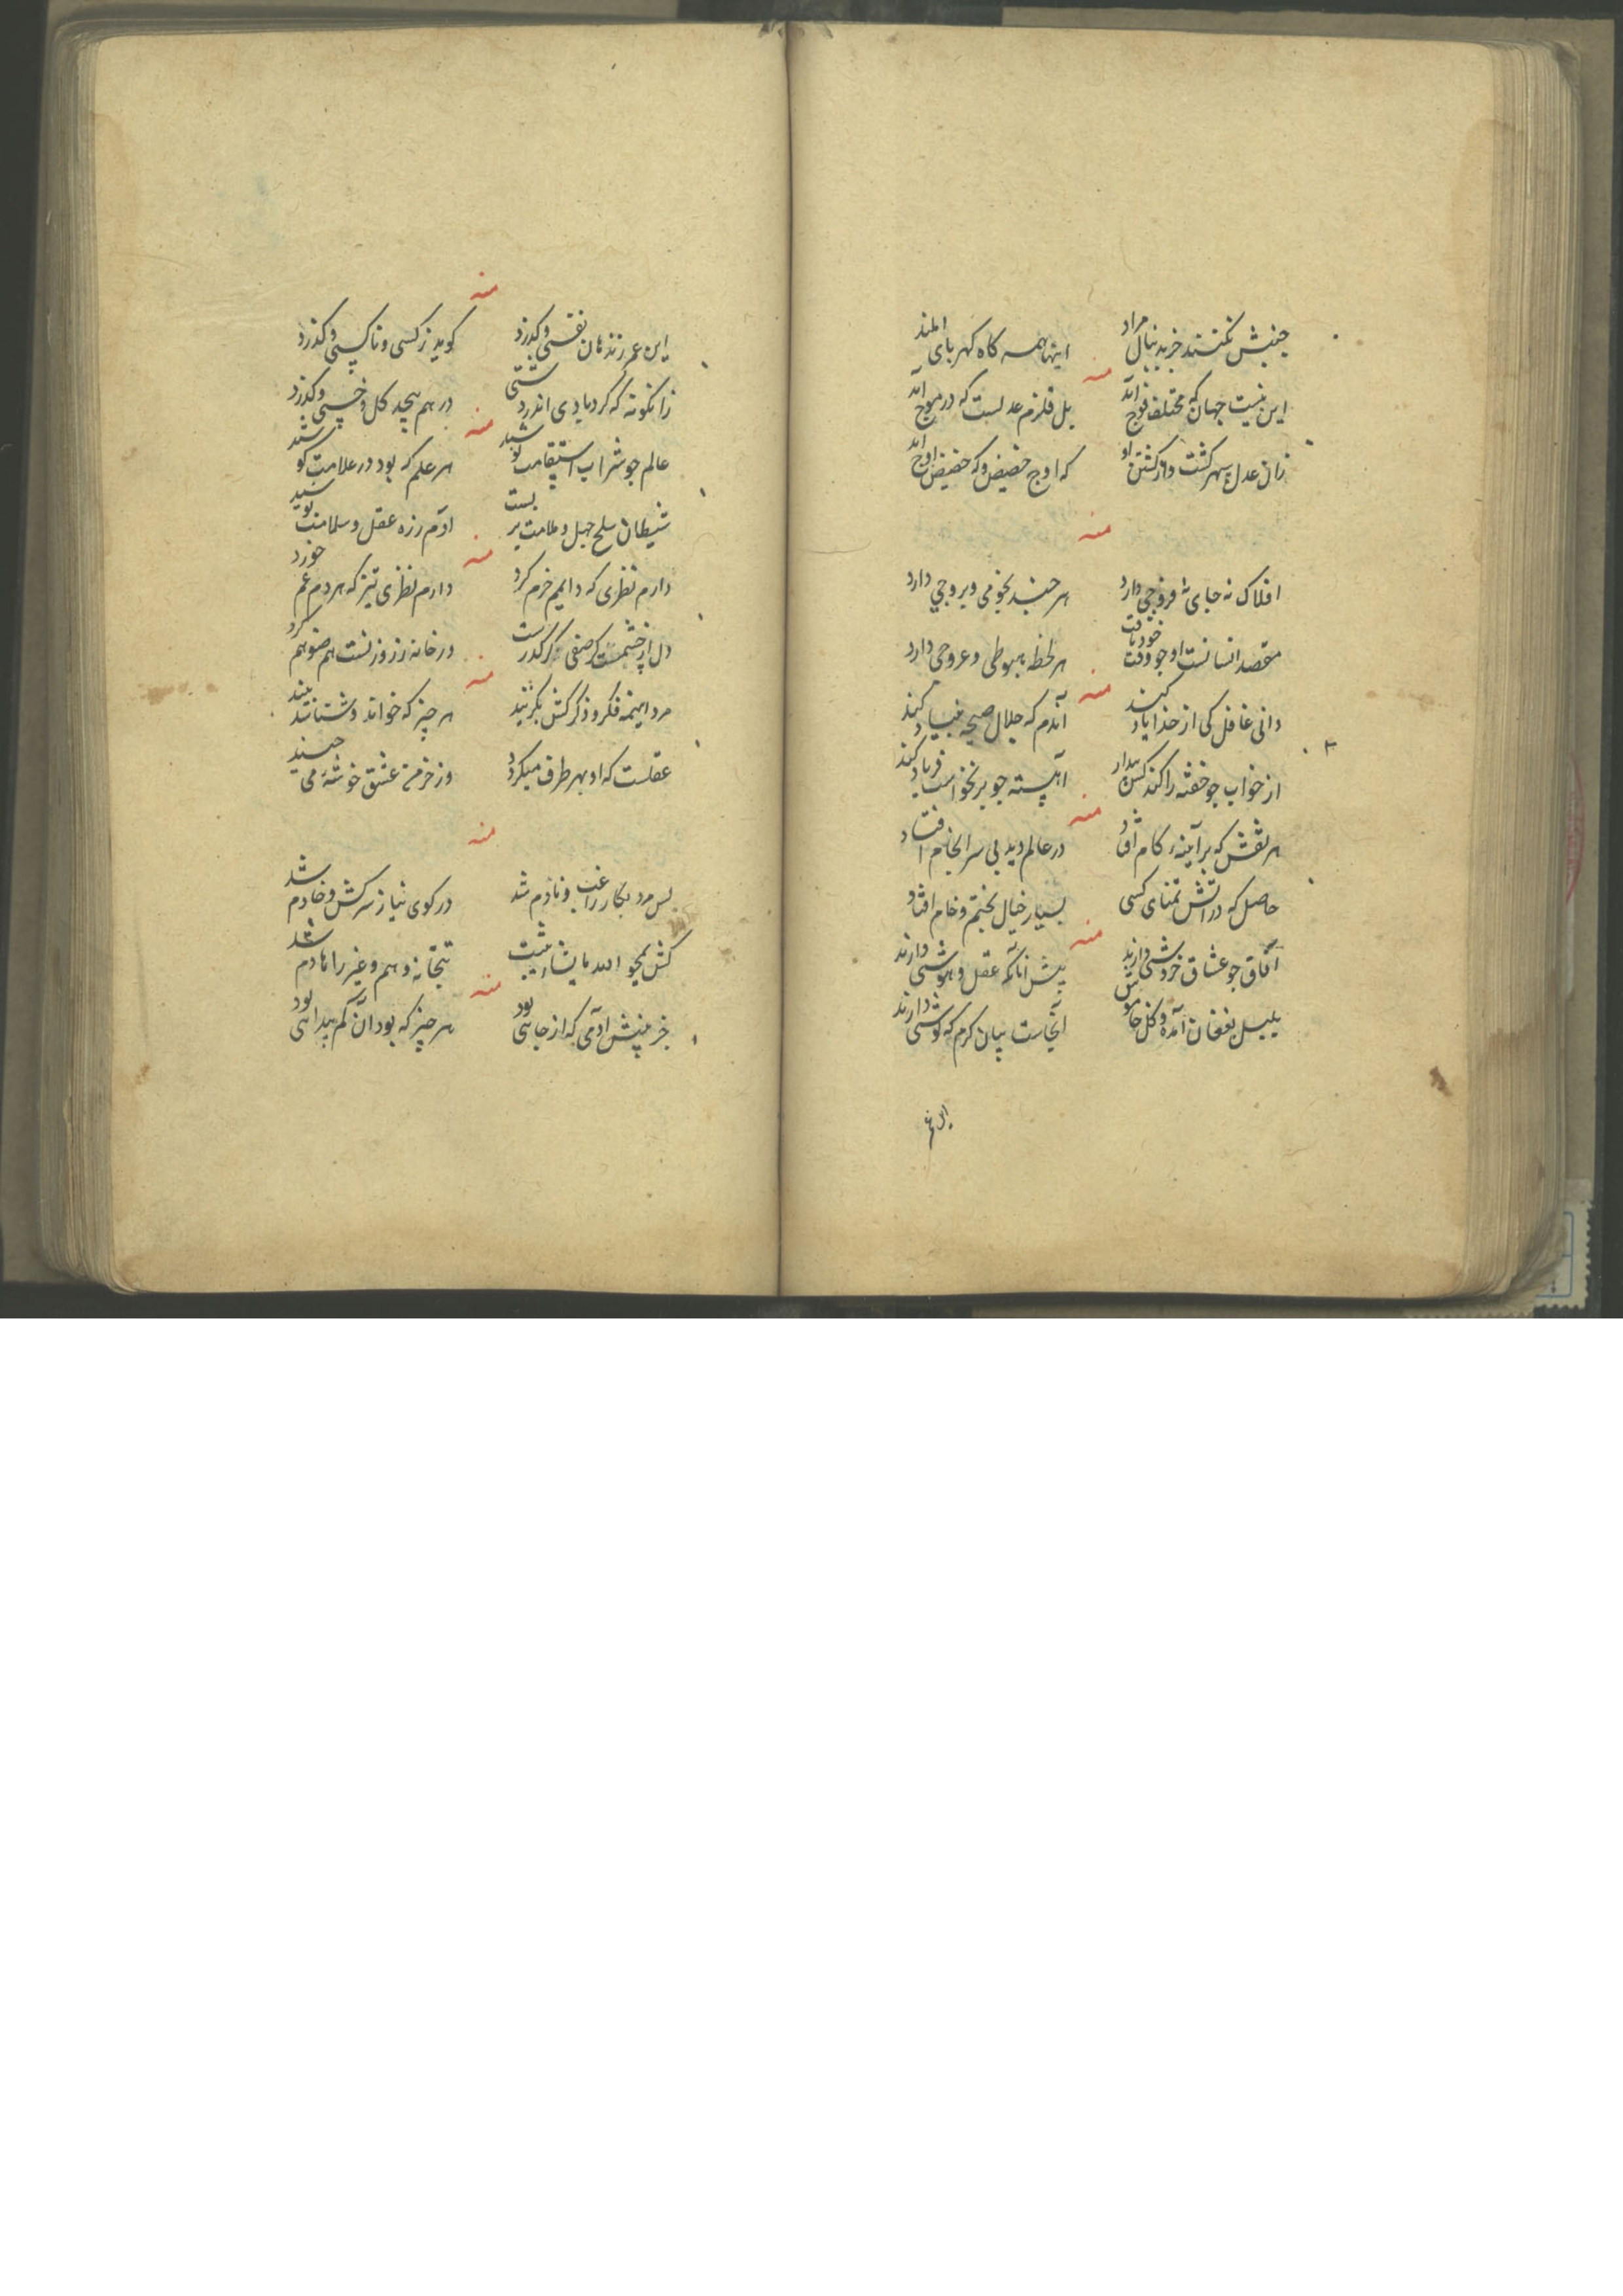 جنبش نکنند جز بدنبال مراد
اینها همه کاه کهربای املند
منه
این نیست جهان که مختلف فوج آمد
بل قلزم عدلست که در موج آمد
زان عدل سپهر کشت و از کشتن او
که اوج حضیض و که حضیض اوج آمد
منه
افلاک نه جای نه فروجی دارد
هر چند نجومی و بروجی دارد
مقصد انسانست او جو وقت خود یافت
هر لحظه هبوطی و عروجی دارد
منه
دانی غافل کی از خدا یاد کند
آندم که جلال صیحه بنیاد کند
از خواب جو خفته را کند کس بیدار
آهسته جو برنخواست فریاد کند
منه
هر نقش که بر آینهٔ کام افتاد
در عالم دید بی سرانجام افتاد
حاصل که در آتش تمنای کسی
بسیار خیال پختم و خام افتاد
منه
آفاق جو عشاق خروشی دارند
پیش آنانکه عقل و هوشی دارند
بلبل بفغان آمده و کل خاموش
آنجاست بیان کرم که کوشی دارند
منه
این عمر زند همان نفسی و کذرد
کوید ز کسی و ناکسی و کذرد
زانکونه که کردبادی اندر دشتی
در هم پیچد کل و خسی و کذرد
منه
عالم جو شراب استقامت نوشید
هر علم که بود در علامت کوشید
شیطان سلح جهل و ملامت بر بست
آدم زره عقل و سلامت پوشید
منه
دارم نظری که دایمم خرم کرد
دارم نظری تیز که هر دم غم خورد
دل
در خانه ز روزنست هم ضو هم کرد
منه
مرد اینهمه فکر و ذکر کش بکزیند
هر چیز که خواند و شناسد بیند
عقلست که او بهر طرف میکردد
وز خرمن عشق خوشهٔ می چیند
منه
بس مرد بکار راغب و نادم شد
در کوی نیاز سرکش و خادم شد
کش یمحو الله ما یشاء یثبت
بتخانه وهم و غیر را هادم شد
منه
جز بینش آدمی که از جاهی بود
هر چیز که بود آن کم